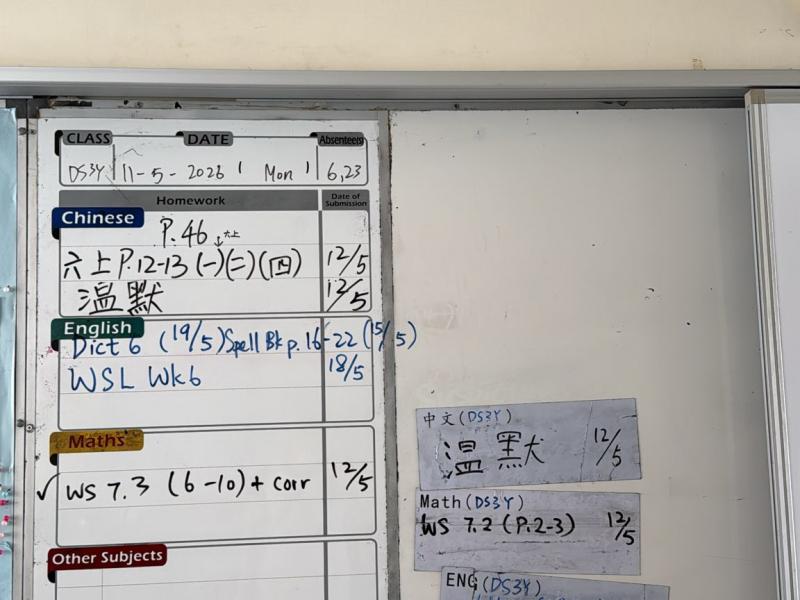 CLASS DATE Absentees
DS3Y 11-5-2026 Mon 6,23
Homework Date of Submission
Chinese
P.46 六上
六上 P.12-13 (一)(二)(四) 12/5
溫默 12/5
English
Dict 6 (19/5) Spell Bk p.16-22 (15/5)
WSL Wk6 18/5
Maths
✓ WS 7.3 (6-10) + corr 12/5
Other Subjects
中文(DS3Y)
溫默 12/5
Math(DS3Y)
WS 7.2 (P.2-3) 12/5
ENG(DS3Y)